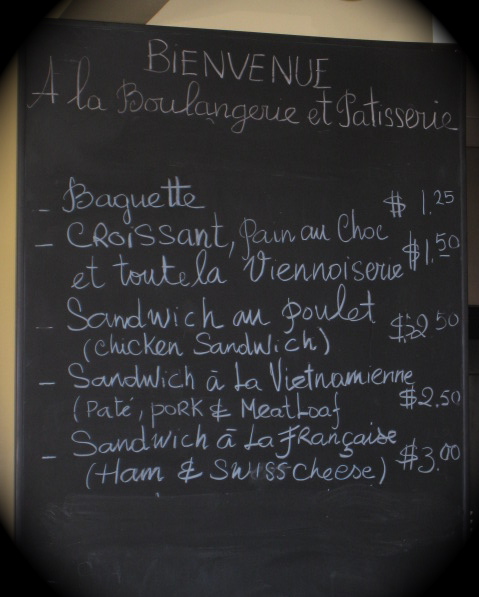 BIENVENUE
A la Boulangerie et Patisserie
- Baguette $ 1.25
- CROISSANT, pain au Choc
et toute la Viennoiserie $1.50
- Sandwich au poulet
(chicken Sandwich) $2.50
- Sandwich à La Vietnamienne
(Paté, poRK & MeatLoaf $2.50
- Sandwich à La française
(Ham & Swiss Cheese) $3.00